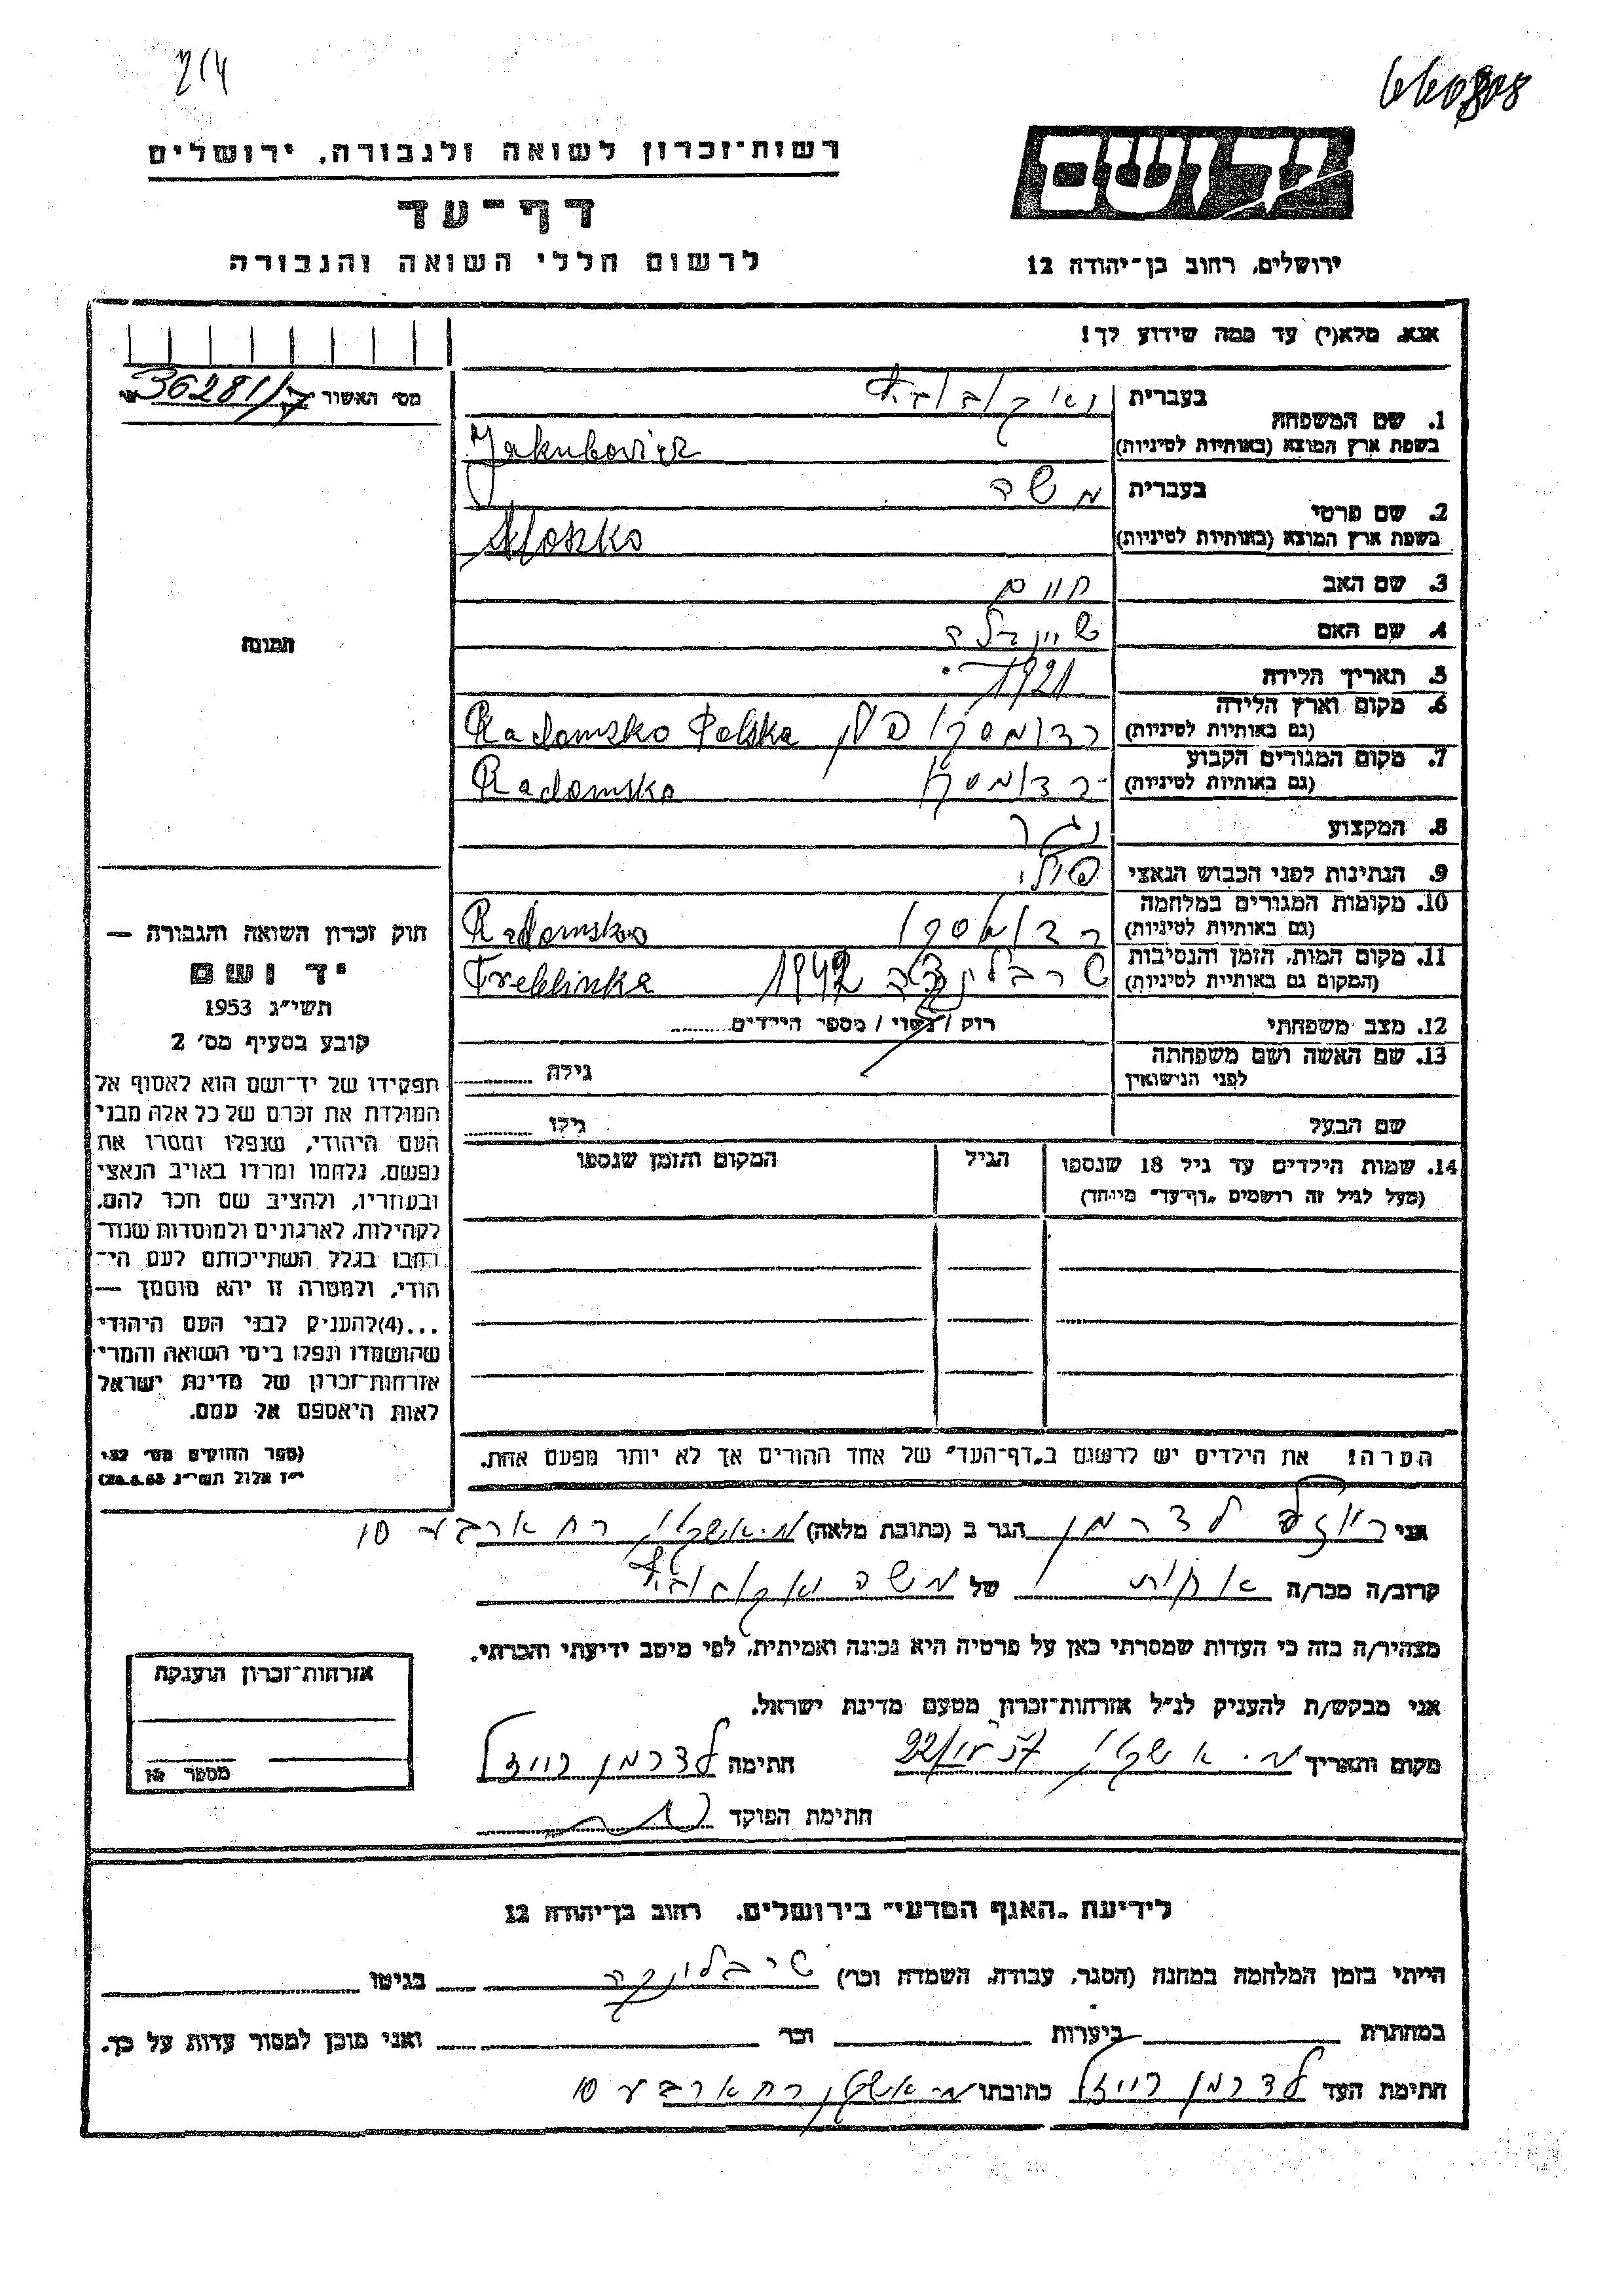 214
רשות־זכרון לשואה ולגבורה, ירושלים
דף־עד
לרשום חללי השואה והגבורה
יד ושם
ירושלים, רחוב בן־יהודה 12
אנא, מלא(י) עד כמה שידוע לך!
מס׳ האשור 36281/7
1. שם המשפחה
בעברית
בשפת ארץ המוצא (באותיות לטיניות) Jakubovicz
2. שם פרטי
בעברית משה
בשפת ארץ המוצא (באותיות לטיניות) Moszko
3. שם האב חיים
4. שם האם שיינדלה
5. תאריך הלידה 1921
6. מקום וארץ הלידה
(גם באותיות לטיניות) רדומסקו פולין Radomsko Polska
7. מקום המגורים הקבוע
(גם באותיות לטיניות) רדומסקו Radomsko
8. המקצוע נגר
9. הנתינות לפני הכבוש הנאצי פולני
10. מקומות המגורים במלחמה
(גם באותיות לטיניות) רדומסקו Radomsko
11. מקום המות, הזמן והנסיבות
(המקום גם באותיות לטיניות) טרבלינקה 1942 Treblinka
12. מצב משפחתי רוק / נשוי / מספר הילדים
13. שם האשה ושם משפחתה
לפני הנישואין גילה
שם הבעל גילו
14. שמות הילדים עד גיל 18 שנספו הגיל המקום והזמן שנספו
(מעל לגיל זה רושמים „דף־עד״ מיוחד)
הערה! את הילדים יש לרשום ב„דף־העד״ של אחד ההורים אך לא יותר מפעם אחת.
תמונה
חוק זכרון השואה והגבורה —
יד ושם
תשי״ג 1953
קובע בסעיף מס׳ 2
תפקידו של יד־ושם הוא לאסוף אל
המולדת את זכרם של כל אלה מבני
העם היהודי, שנפלו ומסרו את
נפשם, נלחמו ומרדו באויב הנאצי
ובעוזריו, ולהציב שם וזכר להם,
לקהילות, לארגונים ולמוסדות שנח־
רבו בגלל השתייכותם לעם הי־
הודי, ולמטרה זו יהא מוסמך —
...(4)להעניק לבני העם היהודי
שהושמדו ונפלו בימי השואה והמרי
אזרחות־זכרון של מדינת ישראל
לאות היאספם אל עמם.
(ספר החוקים מס׳ 132
י״ז אלול תשי״ג 28.8.53)
אני רויזל לדרמן הגר ב (כתובת מלאה) מ. אשקלון רח ארבע 10
קרוב/ה מכר/ה אחות של משה
מצהיר/ה בזה כי העדות שמסרתי כאן על פרטיה היא נכונה ואמיתית, לפי מיטב ידיעתי והכרתי.
אני מבקש/ת להעניק לנ״ל אזרחות־זכרון מטעם מדינת ישראל.
מקום ותאריך מ. אשקלון חתימה לדרמן רויזל
חתימת הפוקד
אזרחות־זכרון הוענקה
מספר
לידיעת „האגף המדעי״ בירושלים, רחוב בן־יהודה 12
הייתי בזמן המלחמה במחנה (הסגר, עבודה, השמדה וכר) טרבלינקה בגיטו
במחתרת ביערות וכר ואני מוכן למסור עדות על כך.
חתימת העד לדרמן רויזל כתובתו מ. אשקלון רח ארבע 10